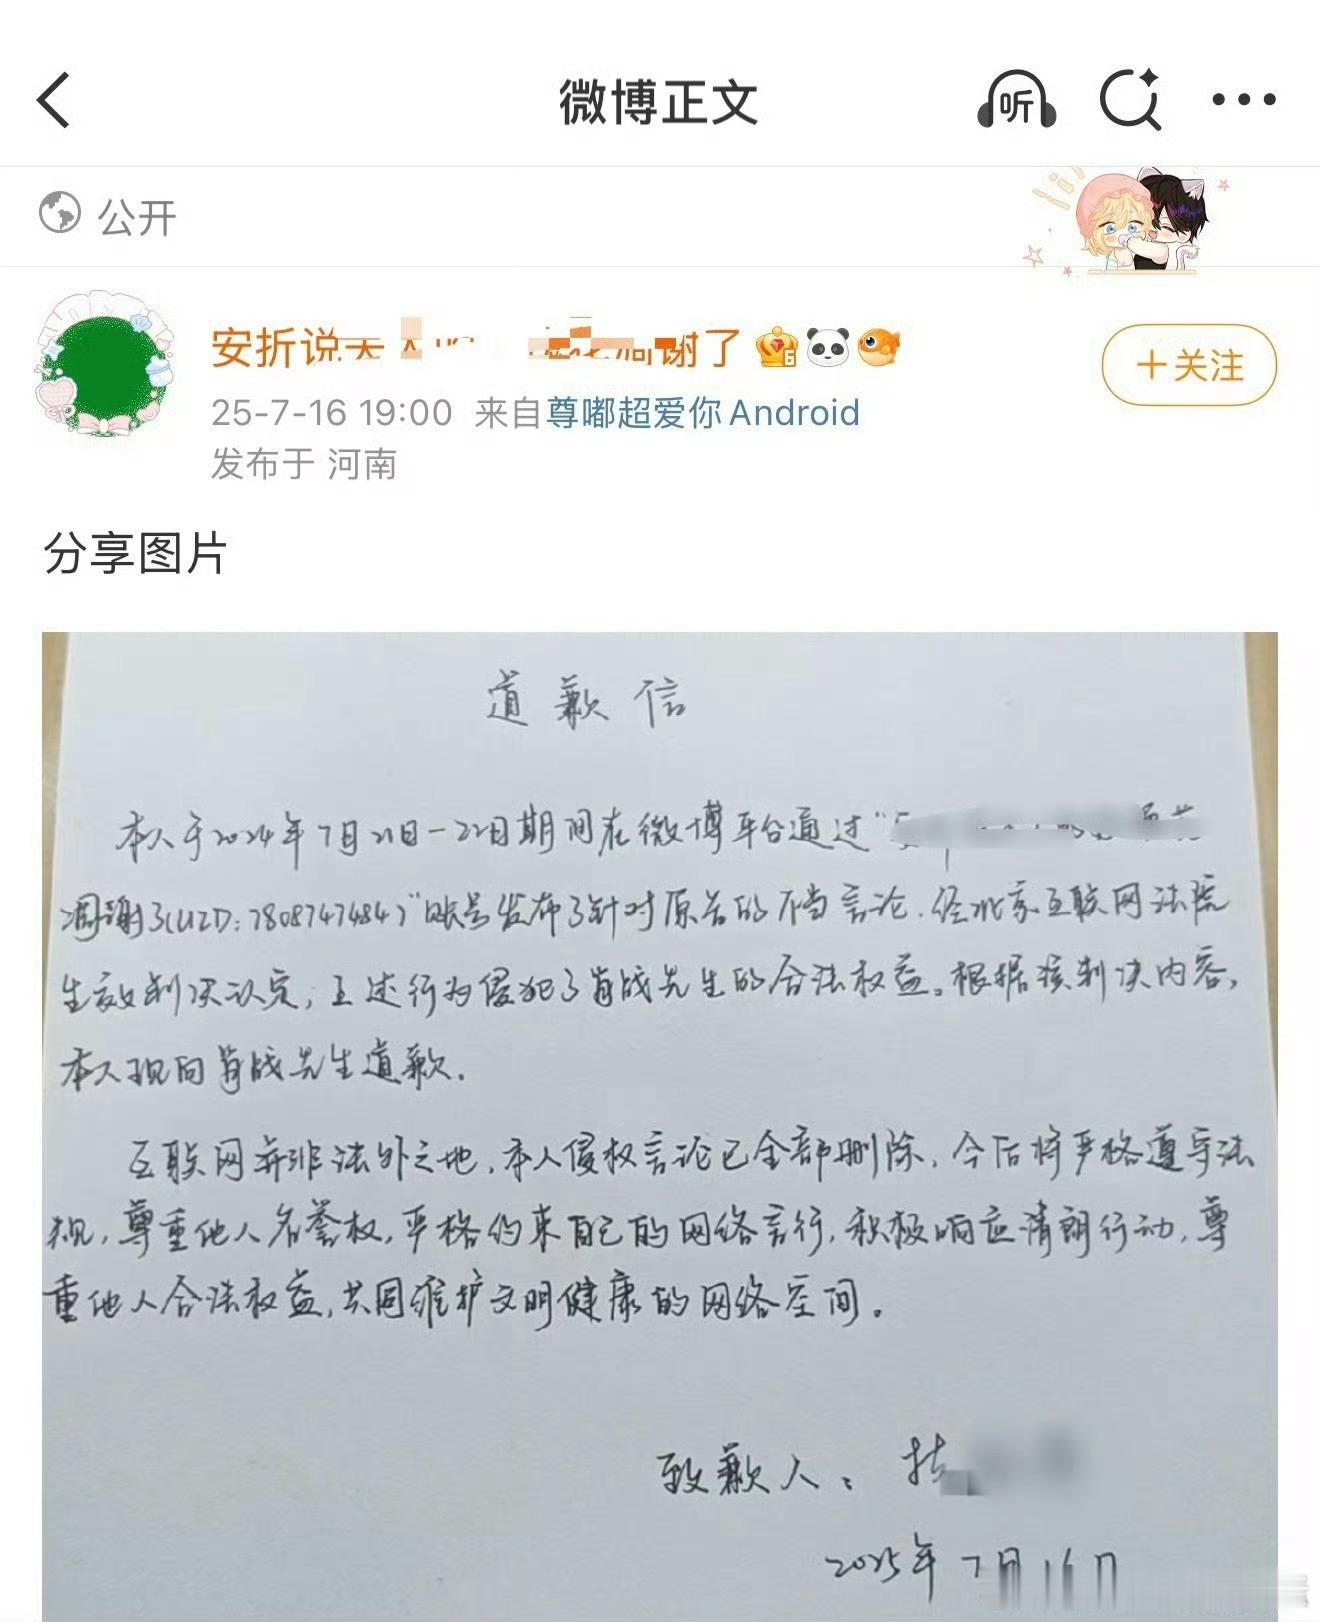 微博正文
听
公开
安折说天 谢了
25-7-16 19:00 来自尊嘟超爱你Android
发布于 河南
+关注
分享图片
道歉信
本人于2024年7月21日-22日期间在微博平台通过"
凋谢了(UID:7808747484)"账号发布了针对原告的不当言论.经北京互联网法院
生效判决认定,上述行为侵犯了肖战先生的合法权益。根据该判决内容,
本人现向肖战先生道歉.
互联网并非法外之地,本人侵权言论已全部删除,今后将严格遵守法
规,尊重他人名誉权,严格约束自己的网络言行,积极响应清朗行动,尊
重他人合法权益,共同维护文明健康的网络空间。
致歉人:
2025年7月16日